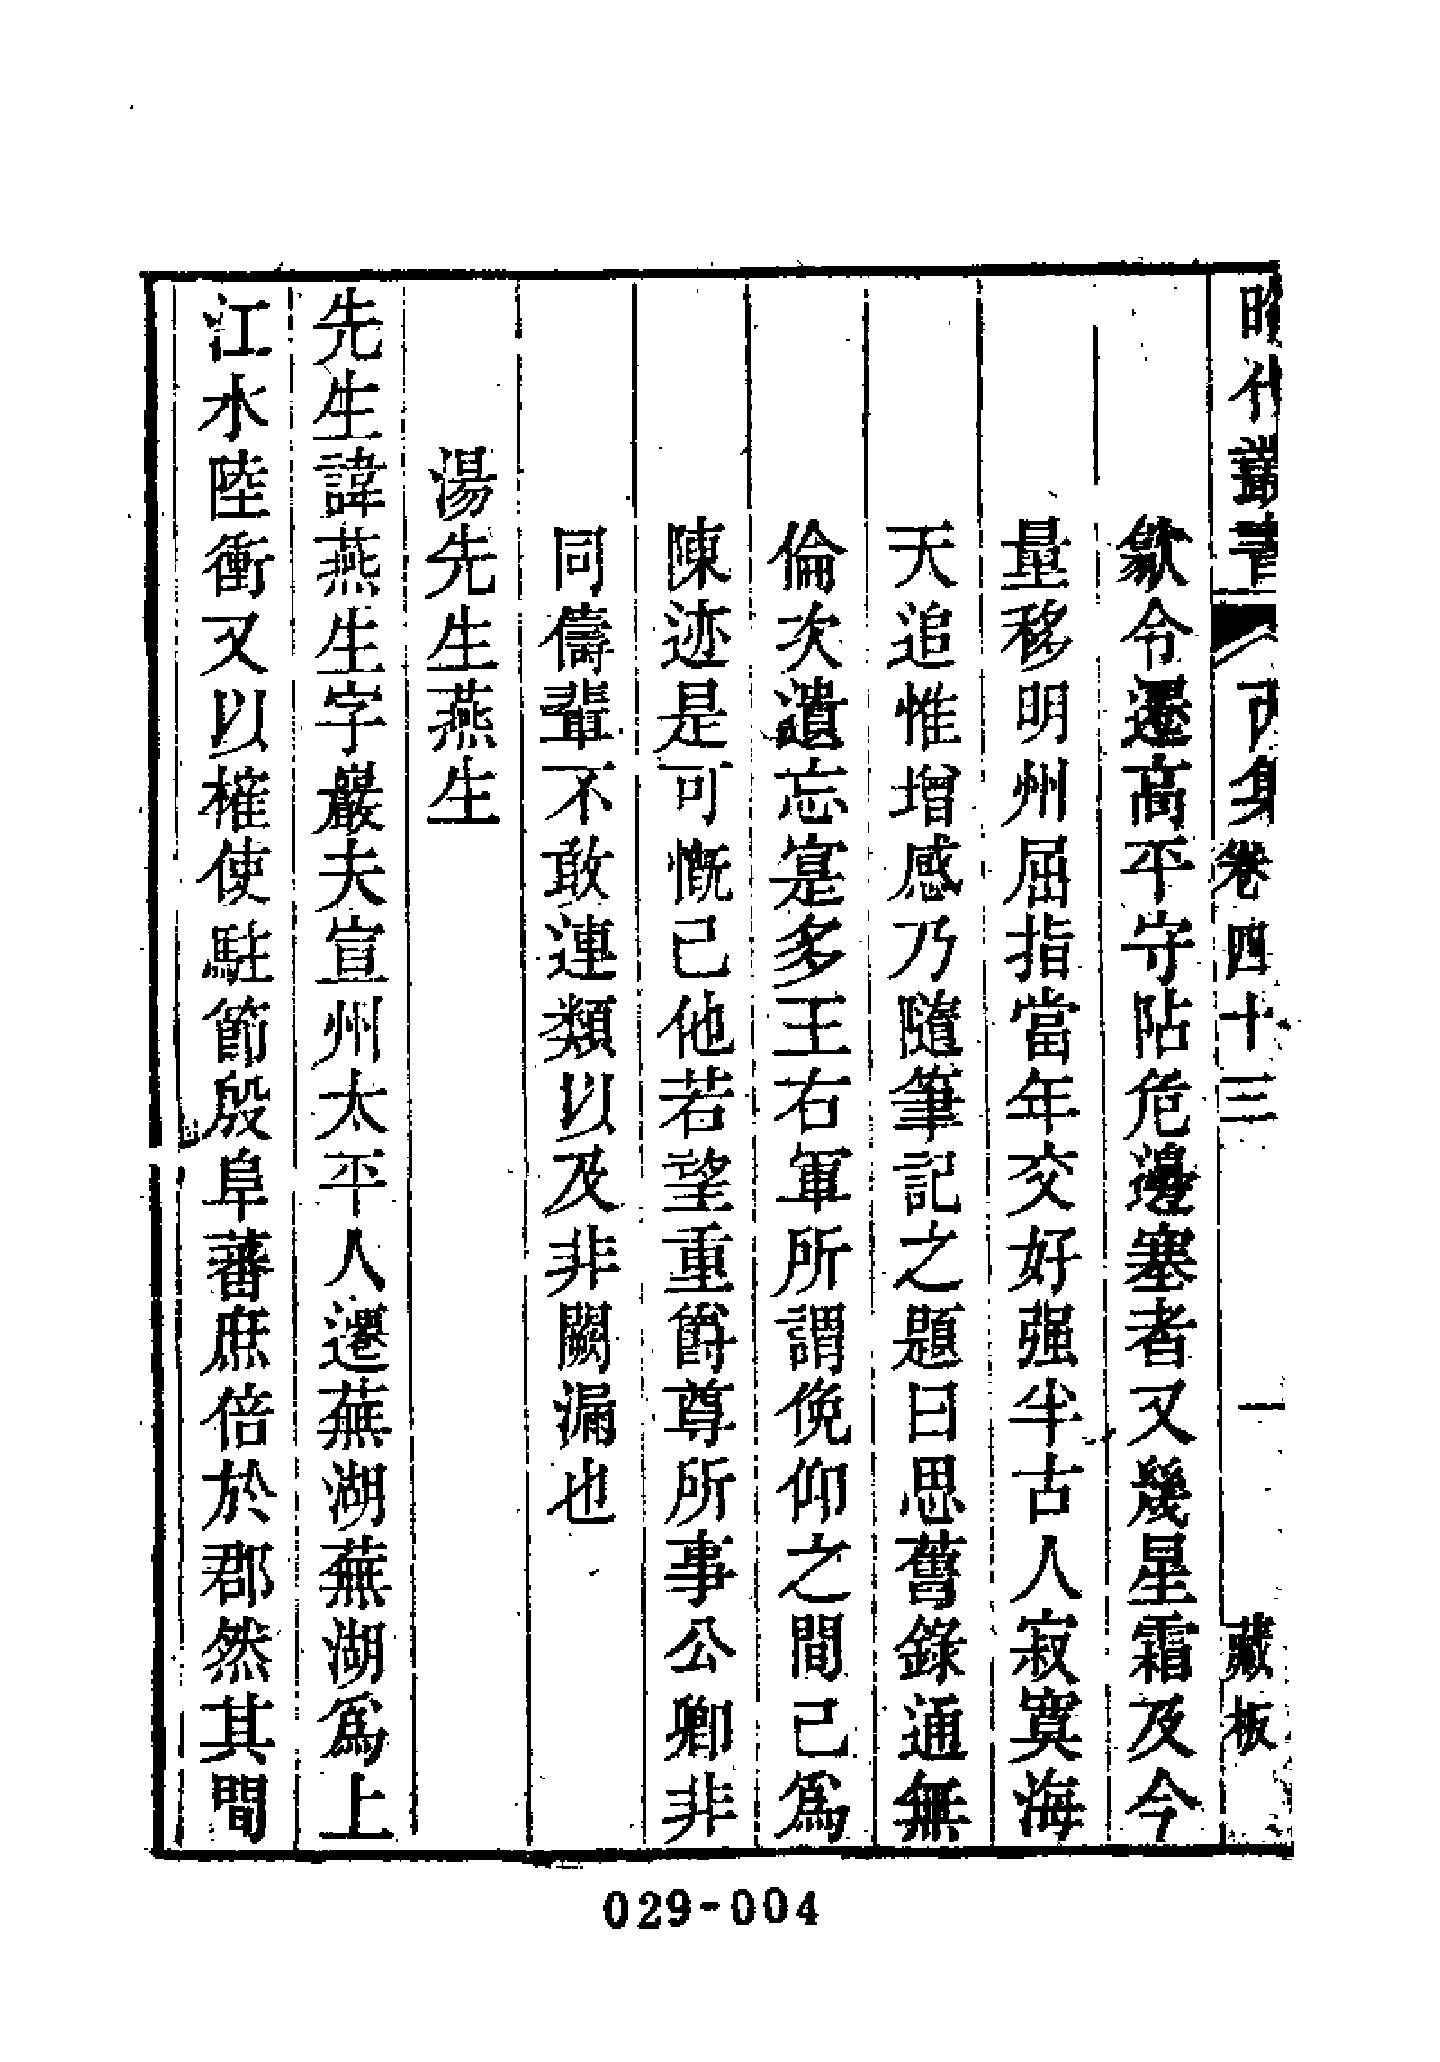 昭代叢書 丙集卷四十三 一 藏板
歙令遷高平守阽危邊塞者又幾星霜及今
量移明州屈指當年交好强半古人寂寞海
天追惟增感乃隨筆記之題曰思舊錄通無
倫次遺忘寔多王右軍所謂俛仰之間已爲
陳迹是可慨已他若望重爵尊所事公卿非
同儔輩不敢連類以及非闕漏也
湯先生燕生
先生諱燕生字巖夫宣州太平人遷蕪湖蕪湖爲上
江水陸衝又以榷使駐節殷阜蕃庶倍於郡然其間
029-004